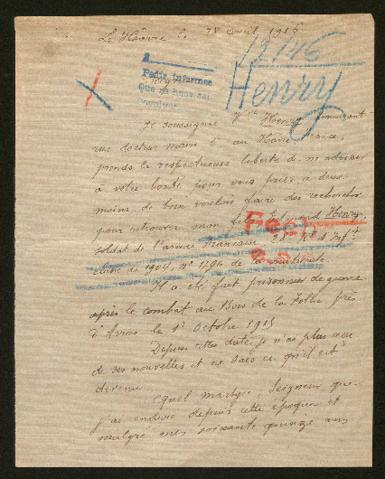 Le Hâvre le 28 Avril 1916
12146
Henry
Pedir informes
Je soussigné Vve Henry demeurant
rue docteur main 5 au Havre
prends la respectueuse liberté de m'adresser
à votre bonté pour vous prier à deux
mains de bien vouloir faire des recherches
pour retrouver mon Henry
soldat de l'armée Française Rt d'Infie
classe de 1904, No 1794
Il a été fait prisonnier de guerre
après le combat au Bois de la Folie près
d'Arras le 1r Octobre 1915
Depuis cette date je n'ai plus eu
de ses nouvelles et ne sais ce qu'il est
devenu
Quel martyre, Seigneur que
j'ai enduré depuis cette époque et
malgré mes soixante quinze ans